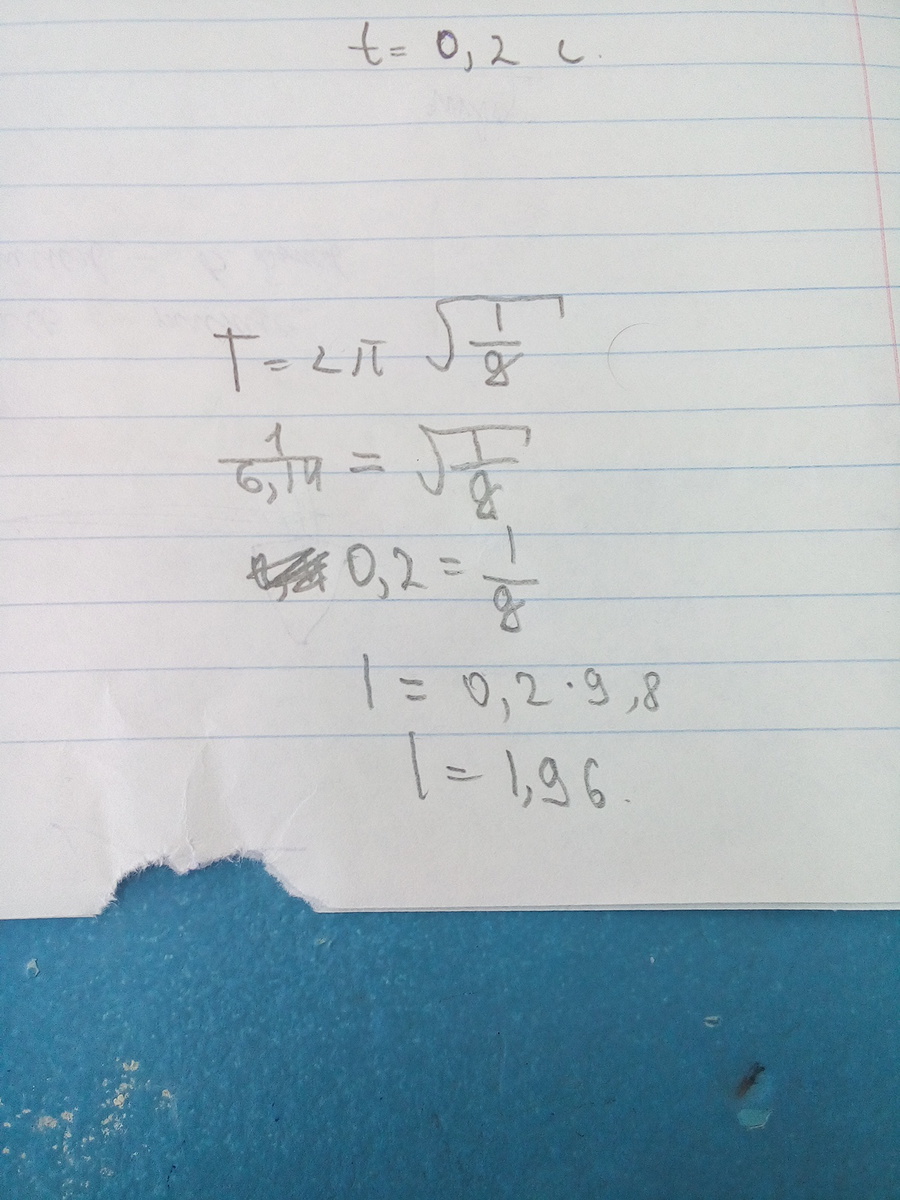 t = 0,2 с.
T = 2π √(l/g)
1/6,14 = √(l/g)
0,2 = l/g
l = 0,2 · 9,8
l = 1,96.